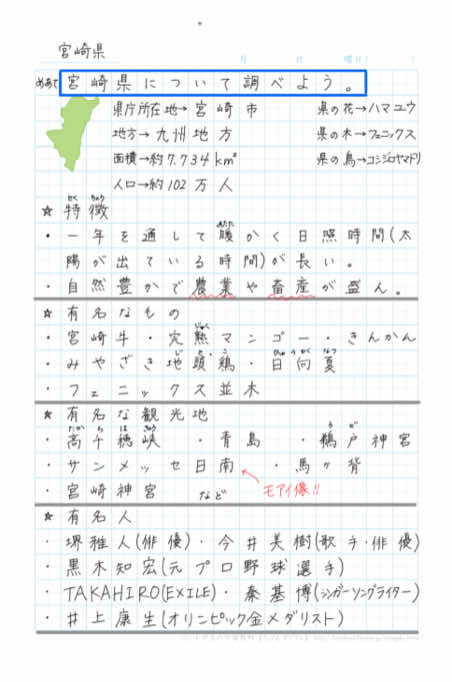 宮崎県
月 日 曜日( )
めあて 宮崎県について調べよう。
県庁所在地→宮崎市 県の花→ハマユウ
地方→九州地方 県の木→フェニックス
面積→約7.734km² 県の鳥→コシジロヤマドリ
人口→約102万人
☆特徴
・一年を通して暖かく日照時間(太
陽が出ている時間)が長い。
・自然豊かで農業や畜産が盛ん。
☆有名なもの
・宮崎牛・完熟マンゴー・きんかん
・みやざき地頭鶏・日向夏
・フェニックス並木
☆有名な観光地
・高千穂峡 ・青島 ・鵜戸神宮
・サンメッセ日南 ・馬ヶ背
モアイ像!!
・宮崎神宮 など
☆有名人
・堺雅人(俳優)・今井美樹(歌手・俳優)
・黒木知宏(元プロ野球選手)
・TAKAHIRO(EXILE)・秦基博(シンガーソングライター)
・井上康生(オリンピック金メダリスト)